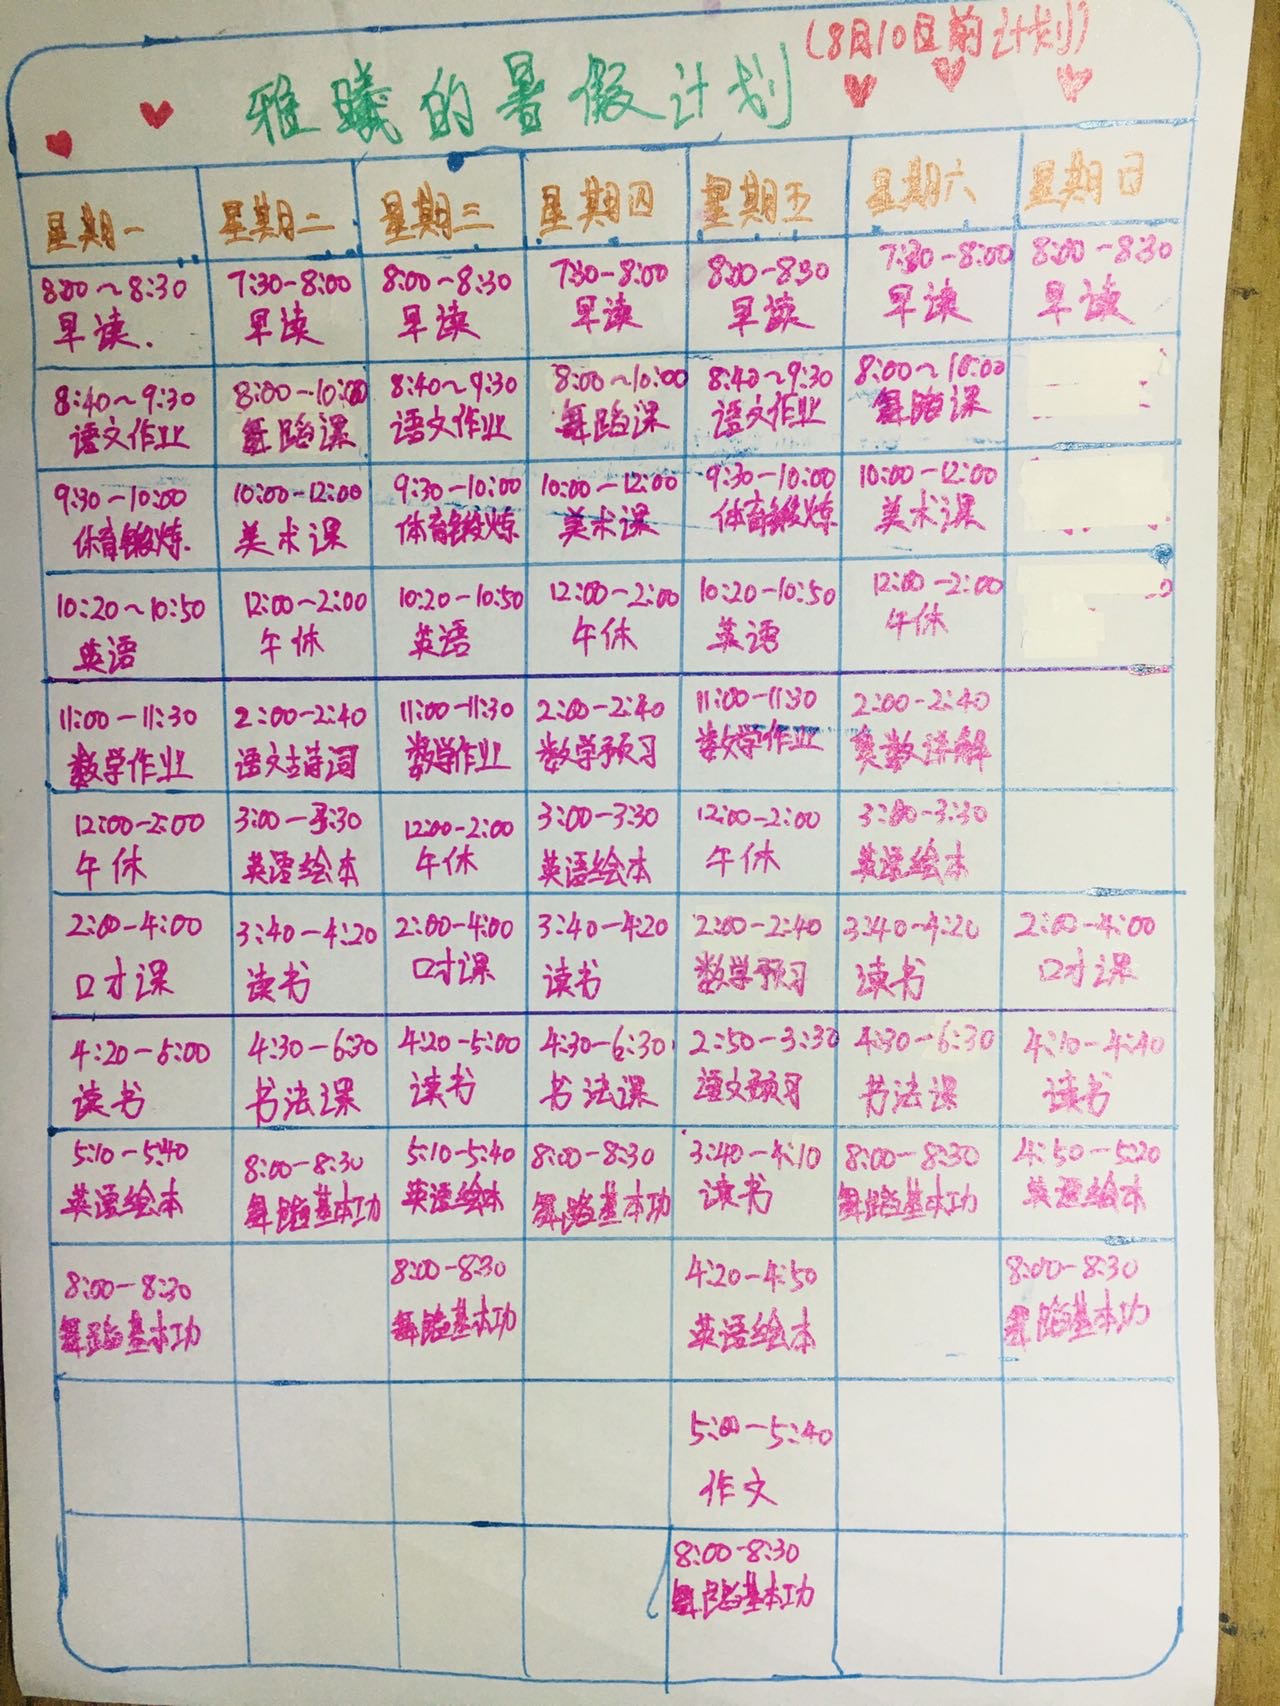 (8月10日前计划)
雅曦的暑假计划
星期一 星期二 星期三 星期四 星期五 星期六 星期日
8:00~8:30 7:30-8:00 8:00-8:30 7:30-8:00 8:00-8:30 7:30-8:00 8:00-8:30
早读. 早读 早读 早读 早读 早读 早读
8:40~9:30 8:00-10:00 8:40~9:30 8:00~10:00 8:40~9:30 8:00~10:00
语文作业 舞蹈课 语文作业 舞蹈课 语文作业 舞蹈课
9:30-10:00 10:00-12:00 9:30-10:00 10:00-12:00 9:30-10:00 10:00-12:00
体育锻炼 美术课 体育锻炼 美术课 体育锻炼 美术课
10:20~10:50 12:00-2:00 10:20-10:50 12:00-2:00 10:20-10:50 12:00-2:00
英语 午休 英语 午休 英语 午休
11:00-11:30 2:00-2:40 11:00-11:30 2:00-2:40 11:00-11:30 2:00-2:40
数学作业 语文古诗词 数学作业 数学预习 数学作业 奥数讲解
12:00-2:00 3:00-3:30 12:00-2:00 3:00-3:30 12:00-2:00 3:00-3:30
午休 英语绘本 午休 英语绘本 午休 英语绘本
2:00-4:00 3:40-4:20 2:00-4:00 3:40-4:20 2:00-2:40 3:40-4:20 2:00-4:00
口才课 读书 口才课 读书 数学预习 读书 口才课
4:20-5:00 4:30-6:30 4:20-5:00 4:30-6:30 2:50-3:30 4:30-6:30 4:10-4:40
读书 书法课 读书 书法课 语文预习 书法课 读书
5:10-5:40 8:00-8:30 5:10-5:40 8:00-8:30 3:40-4:10 8:00-8:30 4:50-5:20
英语绘本 舞蹈基本功 英语绘本 舞蹈基本功 读书 舞蹈基本功 英语绘本
8:00-8:30 8:00-8:30 4:20-4:50 8:00-8:30
舞蹈基本功 舞蹈基本功 英语绘本 舞蹈基本功
5:00-5:40
作文
8:00-8:30
舞蹈基本功